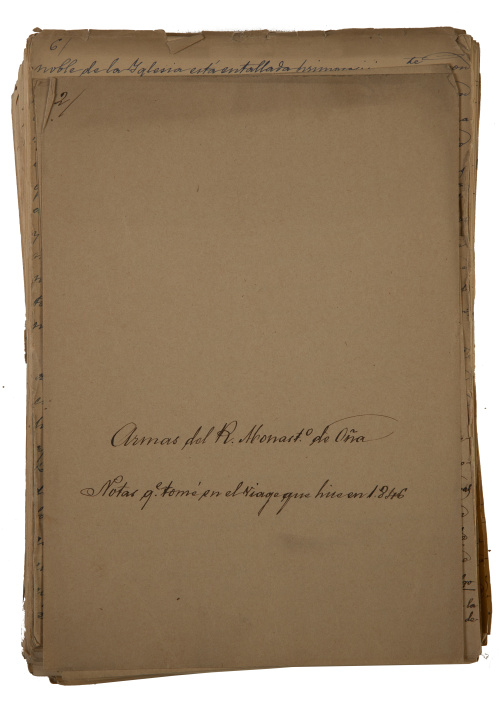 6/
noble de la Iglesia está entallada
2/
Armas del R. Monast.º de Oña
Notas q.e tomé en el viage que hice en 1846